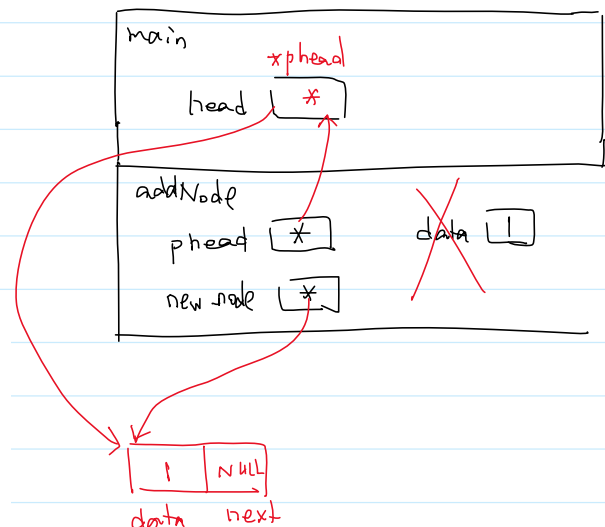 main
*phead
head *
addNode
phead *
data 1
new node *
1 NULL
data next